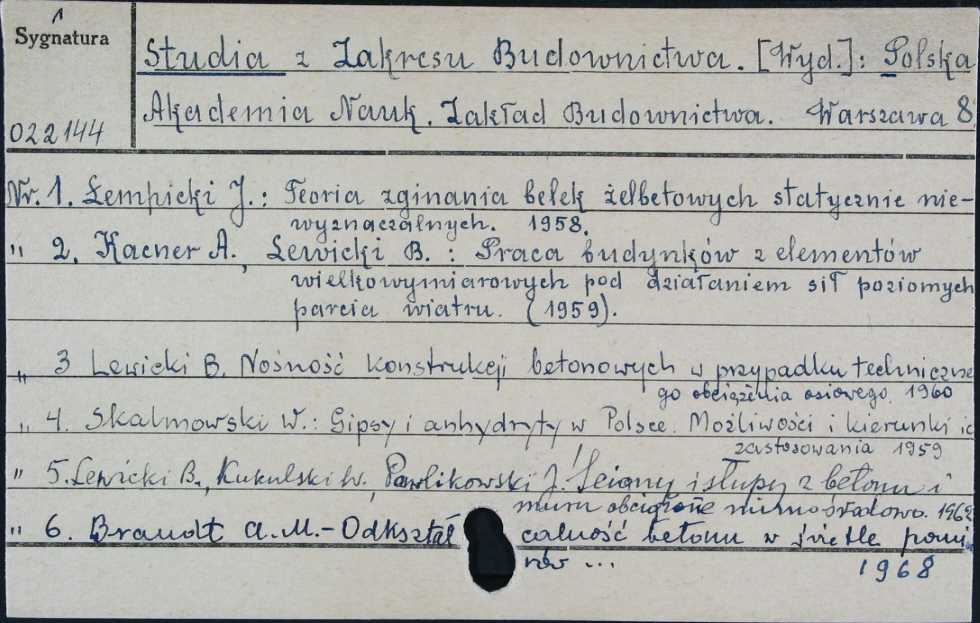 Sygnatura
Studia z Zakresu Budownictwa. [Wyd.]: Polska
Akademia Nauk. Zakład Budownictwa. Warszawa 8
022144
Nr. 1. Łempicki J.: Teoria zginania belek żelbetowych statycznie nie-
wyznaczalnych. 1958.
" 2. Kacner A., Lewicki B.: Praca budynków z elementów
wielkowymiarowych pod działaniem sił poziomych
parcia wiatru. (1959).
" 3 Lewicki B. Nośność konstrukcji betonowych w przypadku techniczne
go obciążenia osiowego. 1960
" 4. Skalmowski W.: Gipsy i anhydryty w Polsce. Możliwości i kierunki ic
zastosowania 1959
" 5. Lewicki B., Kukulski W., Pawlikowski J. Ściany i słupy z betonu i
muru obciążone mimośrodowo. 1962
" 6. Brandt A. M. - Odkształcalność betonu w świetle pomia
rów ... 1968